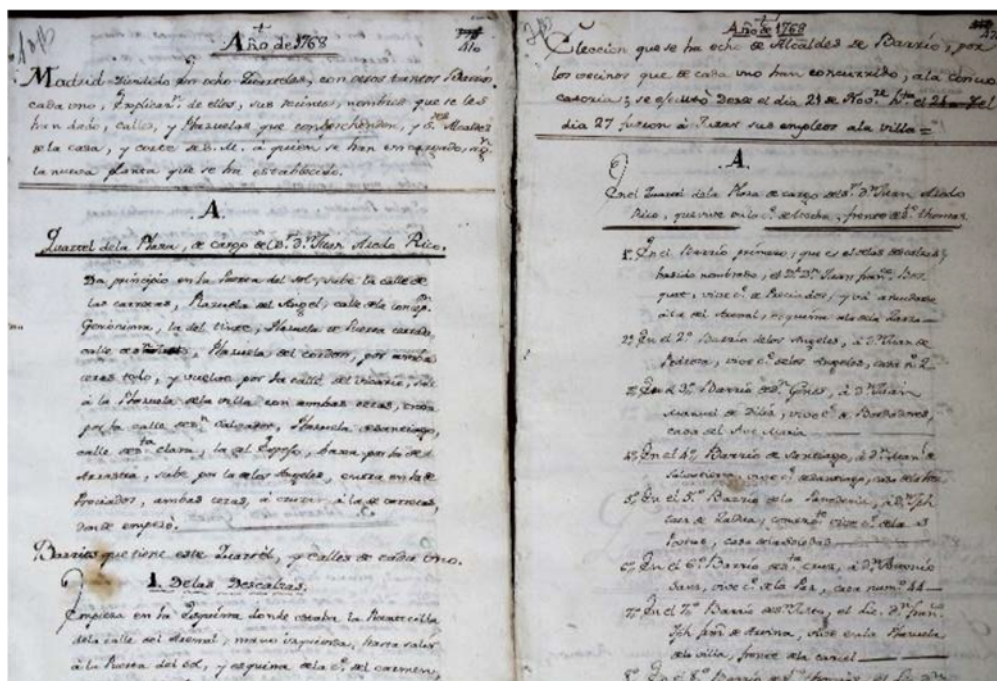 Año de 1768
410
Madrid dividido en ocho Quarteles, con otros tantos Barrios
cada uno, Explicaz.n de ellos, sus recintos, nombres que se les
han dado, calles, y Plazuelas que comprehenden, y S.res Alcaldes
de la casa, y corte de S. M. à quien se han encargado, sg.n
la nueva planta que se ha establecido.
.A.
Quartel de la Plaza, de cargo del S.r D.n Juan Acedo Rico.
Da principio en la Puerta del sol, sube la calle de
las carretas, Plazuela del Angel, calle de la concep.n
Geronima, la del , Plazuela de Puerta cerrada,
calle de , Plazuela del cordon, por ambas
ceras todo, y vuelve por la calle del vicario, sale
à la Plazuela de la villa con ambas ceras, entra
por la calle de S.n Salvador, Plazuela de Santiago,
calle de S.ta clara, la del Espejo, baxa por la de
Arrastia, sube por la de los Angeles, entra en la de
Preciados, ambas ceras, à cruzar à la de carretas,
donde empezò.
Barrios que tiene este Quartel, y calles de cada uno.
1. De las Descalzas.
Empieza en la Esquina donde estaba la
de la calle del Arenal, mano izquierda, hasta salir
à la Puerta del Sol, y esquina de la c.e del carmen,
Año de 1768
Eleccion que se ha echo de Alcaldes de Barrio, por
los vecinos que de cada uno han concurrido, a la convo
catoria; se executò desde el dia 21 de Nov.re h.ta el 24 y el
dia 27 fueron à Jurar sus empleos a la villa =
.A.
En el Quartel de la Plaza de cargo del S.r D.n Juan Acedo
Rico, que vive en la c.e de Atocha, frente de S.to thomas.
1.º En el Barrio primero, que es el de las descalzas,
ha sido nombrado, el S.r D.n Juan Fran.co
, vive c.e de Preciados, y và a
à la del Arenal, esquina a la de la Zarza
2.º En el 2.º Barrio de los Angeles, à D.n Juan de
Pedroza, vive c.e de los Angeles, casa n.º 2
3.º En el 3.º Barrio de S.n Gines, à D.n Juan
Manuel de , vive c.e de Bordadores,
casa del Ave Maria
4.º En el 4.º Barrio de Santiago, à D.n Juan de
, vive c.e de Santiago,
5.º En el 5.º Barrio de la Panaderia, à D.n Jph
de , vive c.e de la
, casa
6.º En el 6.º Barrio de S.ta cruz, à D.n Antonio
Sanz, vive c.e de la Paz, casa num.º 44
7.º En el 7.º Barrio de S.n Justo, el Lic. D.n Jran.
Jph de , vive en la Plazuela
de la villa, frente de la carcel
8.º En el 8.º Barrio de S.to thomas, el